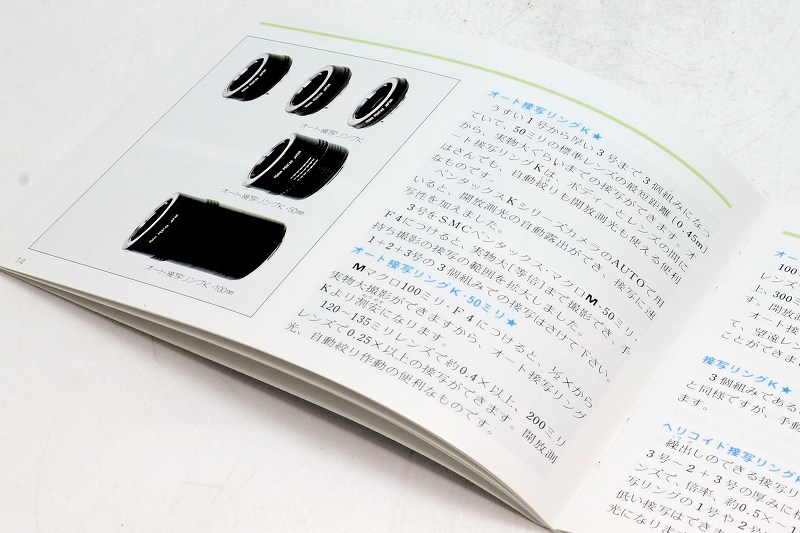 オート接写リングK
オート接写リングK・50mm
オート接写リングK・100mm
14
オート接写リングK★
うすい1号から厚い3号まで3個組みになっ
ていて、50ミリの標準レンズの最短距離(0.45m)
から、実物大ぐらいまでの接写ができます。オ
ート接写リングKは、ボディーとレンズの間に
はさんでも、自動絞りも開放測光も使える便利
なものです。
ペンタックスKシリーズカメラのAUTOで用
いると、開放測光の自動露出ができ、接写に速
写性を加えました。
3号をSMCペンタックス-マクロM・50ミリ・
F4につけると、実物大(等倍)まで撮影でき、手
持ち撮影の接写の範囲を拡大しました。
1+2+3号の3個組みでの接写はさけて下さい。
オート接写リングK・50ミリ★
Mマクロ100ミリ・F4につけると、½×から
実物大撮影ができますから、オート接写リング
Kより割安になります。
120〜135ミリレンズで約0.4×以上、200ミリ
レンズで0.25×以上の接写ができます。開放測
光、自動絞り作動の便利なものです。
オー
100
レンズ
上、300
す。開放
オート接
て、望遠レン
ことができま
接写リングK★
3個組みである
と同様ですが、手動
ます。
ヘリコイド接写リングK
繰出しのできる接写リ
3号〜2+3号の厚みに相
ンズで、倍率、約0.5×〜1
写リングの1号や2号
低い接写はできま
光になります